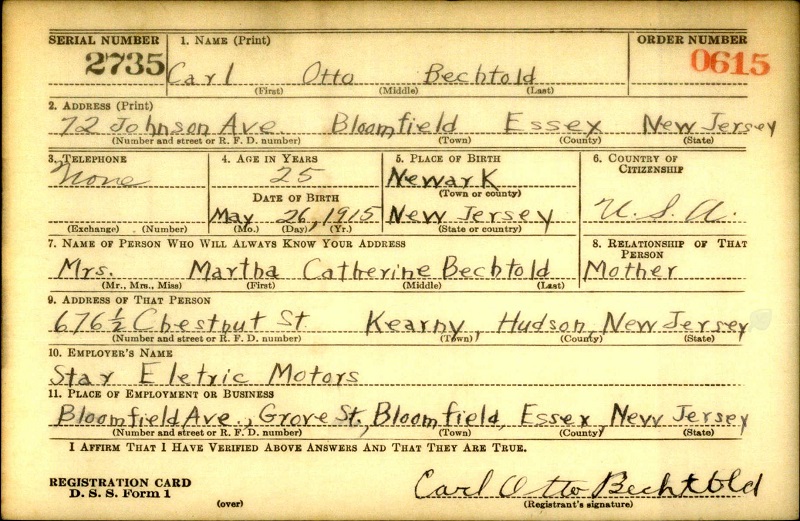 SERIAL NUMBER 1. NAME (Print) ORDER NUMBER
2735 Carl Otto Bechtold 0615
(First) (Middle) (Last)
2. ADDRESS (Print)
72 Johnson Ave. Bloomfield Essex New Jersey
(Number and street or R. F. D. number) (Town) (County) (State)
3. TELEPHONE 4. AGE IN YEARS 5. PLACE OF BIRTH 6. COUNTRY OF CITIZENSHIP
None 25 Newark
(Town or county)
DATE OF BIRTH
May 26, 1915 New Jersey U. S. A.
(Exchange) (Number) (Mo.) (Day) (Yr.) (State or country)
7. NAME OF PERSON WHO WILL ALWAYS KNOW YOUR ADDRESS 8. RELATIONSHIP OF THAT PERSON
Mrs. Martha Catherine Bechtold Mother
(Mr., Mrs., Miss) (First) (Middle) (Last)
9. ADDRESS OF THAT PERSON
676 1/2 Chestnut St. Kearny, Hudson, New Jersey
(Number and street or R. F. D. number) (Town) (County) (State)
10. EMPLOYER'S NAME
Star Eletric Motors
11. PLACE OF EMPLOYMENT OR BUSINESS
Bloomfield Ave., Grove St., Bloomfield, Essex, New Jersey
(Number and street or R. F. D. number) (Town) (County) (State)
I AFFIRM THAT I HAVE VERIFIED ABOVE ANSWERS AND THAT THEY ARE TRUE.
REGISTRATION CARD Carl Otto Bechtold
D. S. S. Form 1 (over) (Registrant's signature)